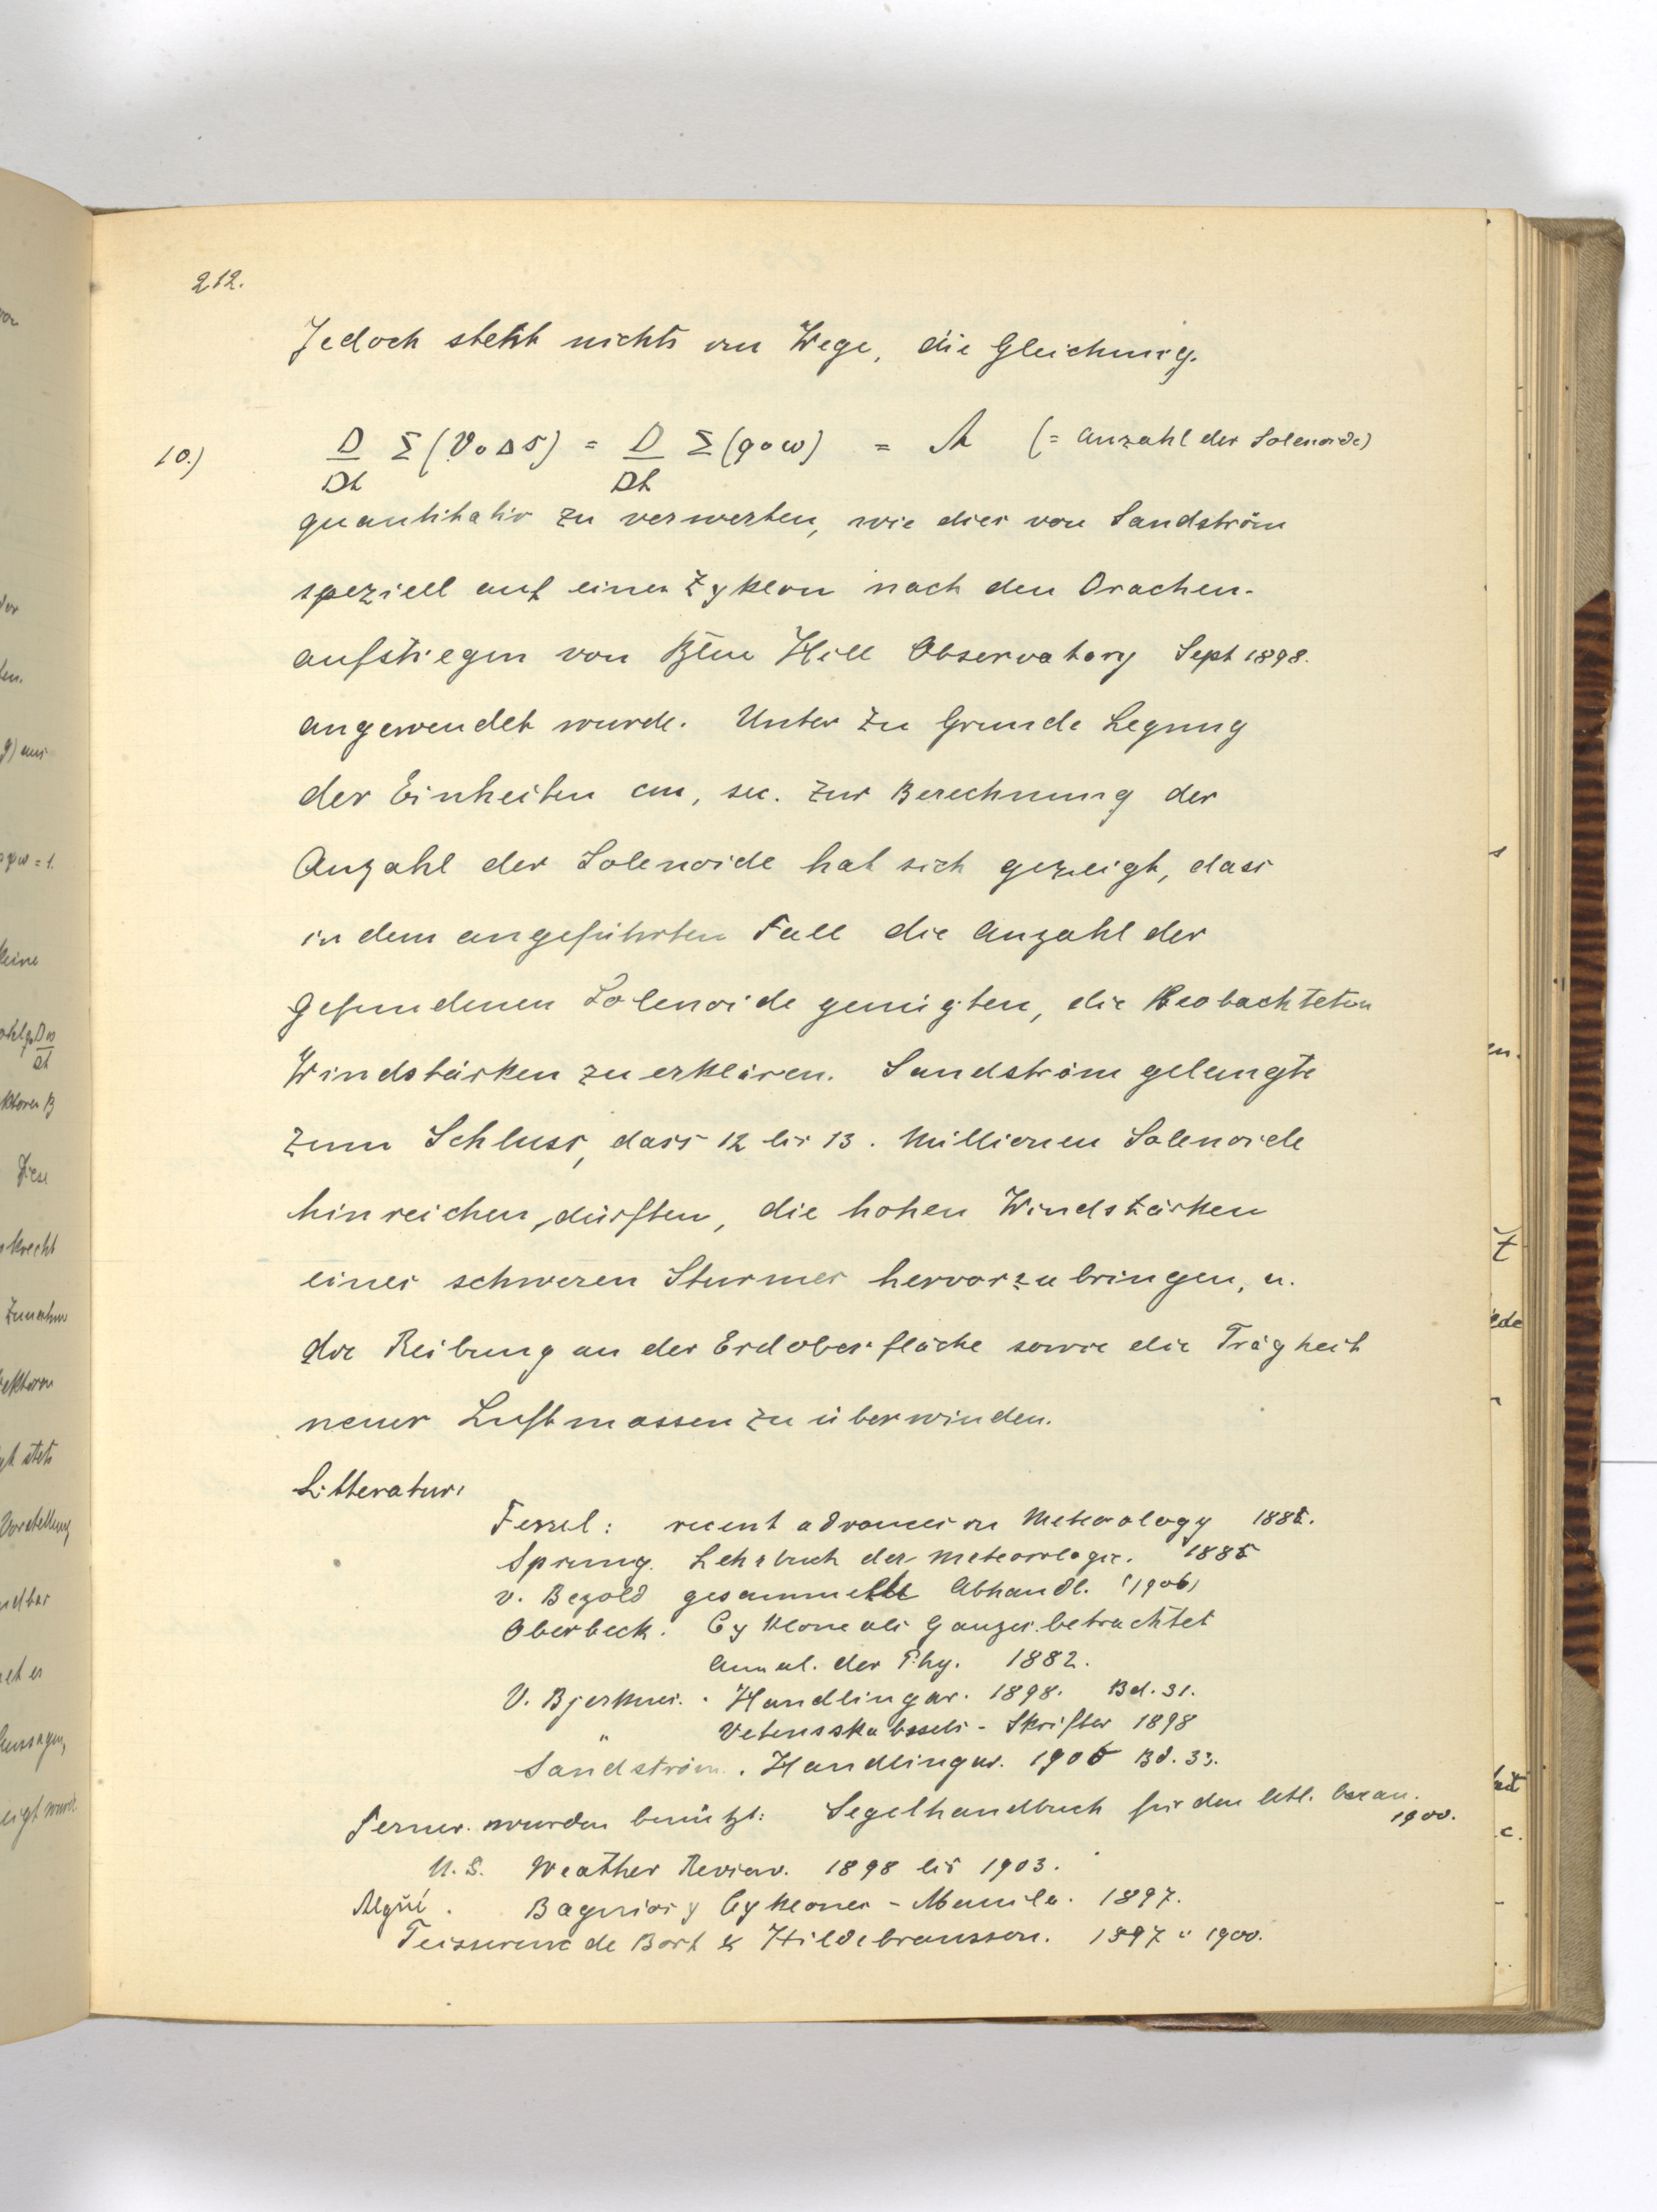 212.
Jedoch steht nichts im Wege, die Gleichung.
10.) D/Dt Σ(V₀ Δ s) = D/Dt Σ(q₀ω) = A (= Anzahl der Solenoide)
quantitativ zu verwerten, wie dies von Sandström
speziell auf einen Zyklon nach den Drachen-
aufstiegen von Blue Hill Observatory Sept 1898.
angewendet wurde. Unter zu Grunde Legung
der Einheiten cm, sec. zur Berechnung der
Anzahl der Solenoide hat sich gezeigt, dass
in dem angeführten Fall die Anzahl der
gefundenen Solenoide genügten, die beobachteten
Windstärken zu erklären. Sandström gelangte
zum Schluss, dass 12 bis 13. Millionen Solenoide
hinreichen dürften, die hohen Windstärken
eines schweren Sturmes hervorzubringen, u.
die Reibung an der Erdoberfläche sowie die Trägheit
neuer Luftmassen zu überwinden.
Litteratur:
Ferrel: recent advances in Meteorology 1885.
Sprung. Lehrbuch der Meteorologie. 1885
v. Bezold gesammelte Abhandl. (1906)
Oberbeck. Cyklone als Ganzes betrachtet
Annal. der Phy. 1882.
V. Bjerknes. Handlingar. 1898. Bd. 31.
" Vetensskabssels-Skrifter 1898
Sandström. Handlingar. 1900 Bd. 33.
Ferner wurden benützt: Segelhandbuch für den atl. Ozean.
1900.
U.S. Weather Review. 1898 bis 1903.
Algué. Baguios y Cyklones - Manila. 1897.
Teisserenc de Bort & Hildebransson. 1897 " 1900.